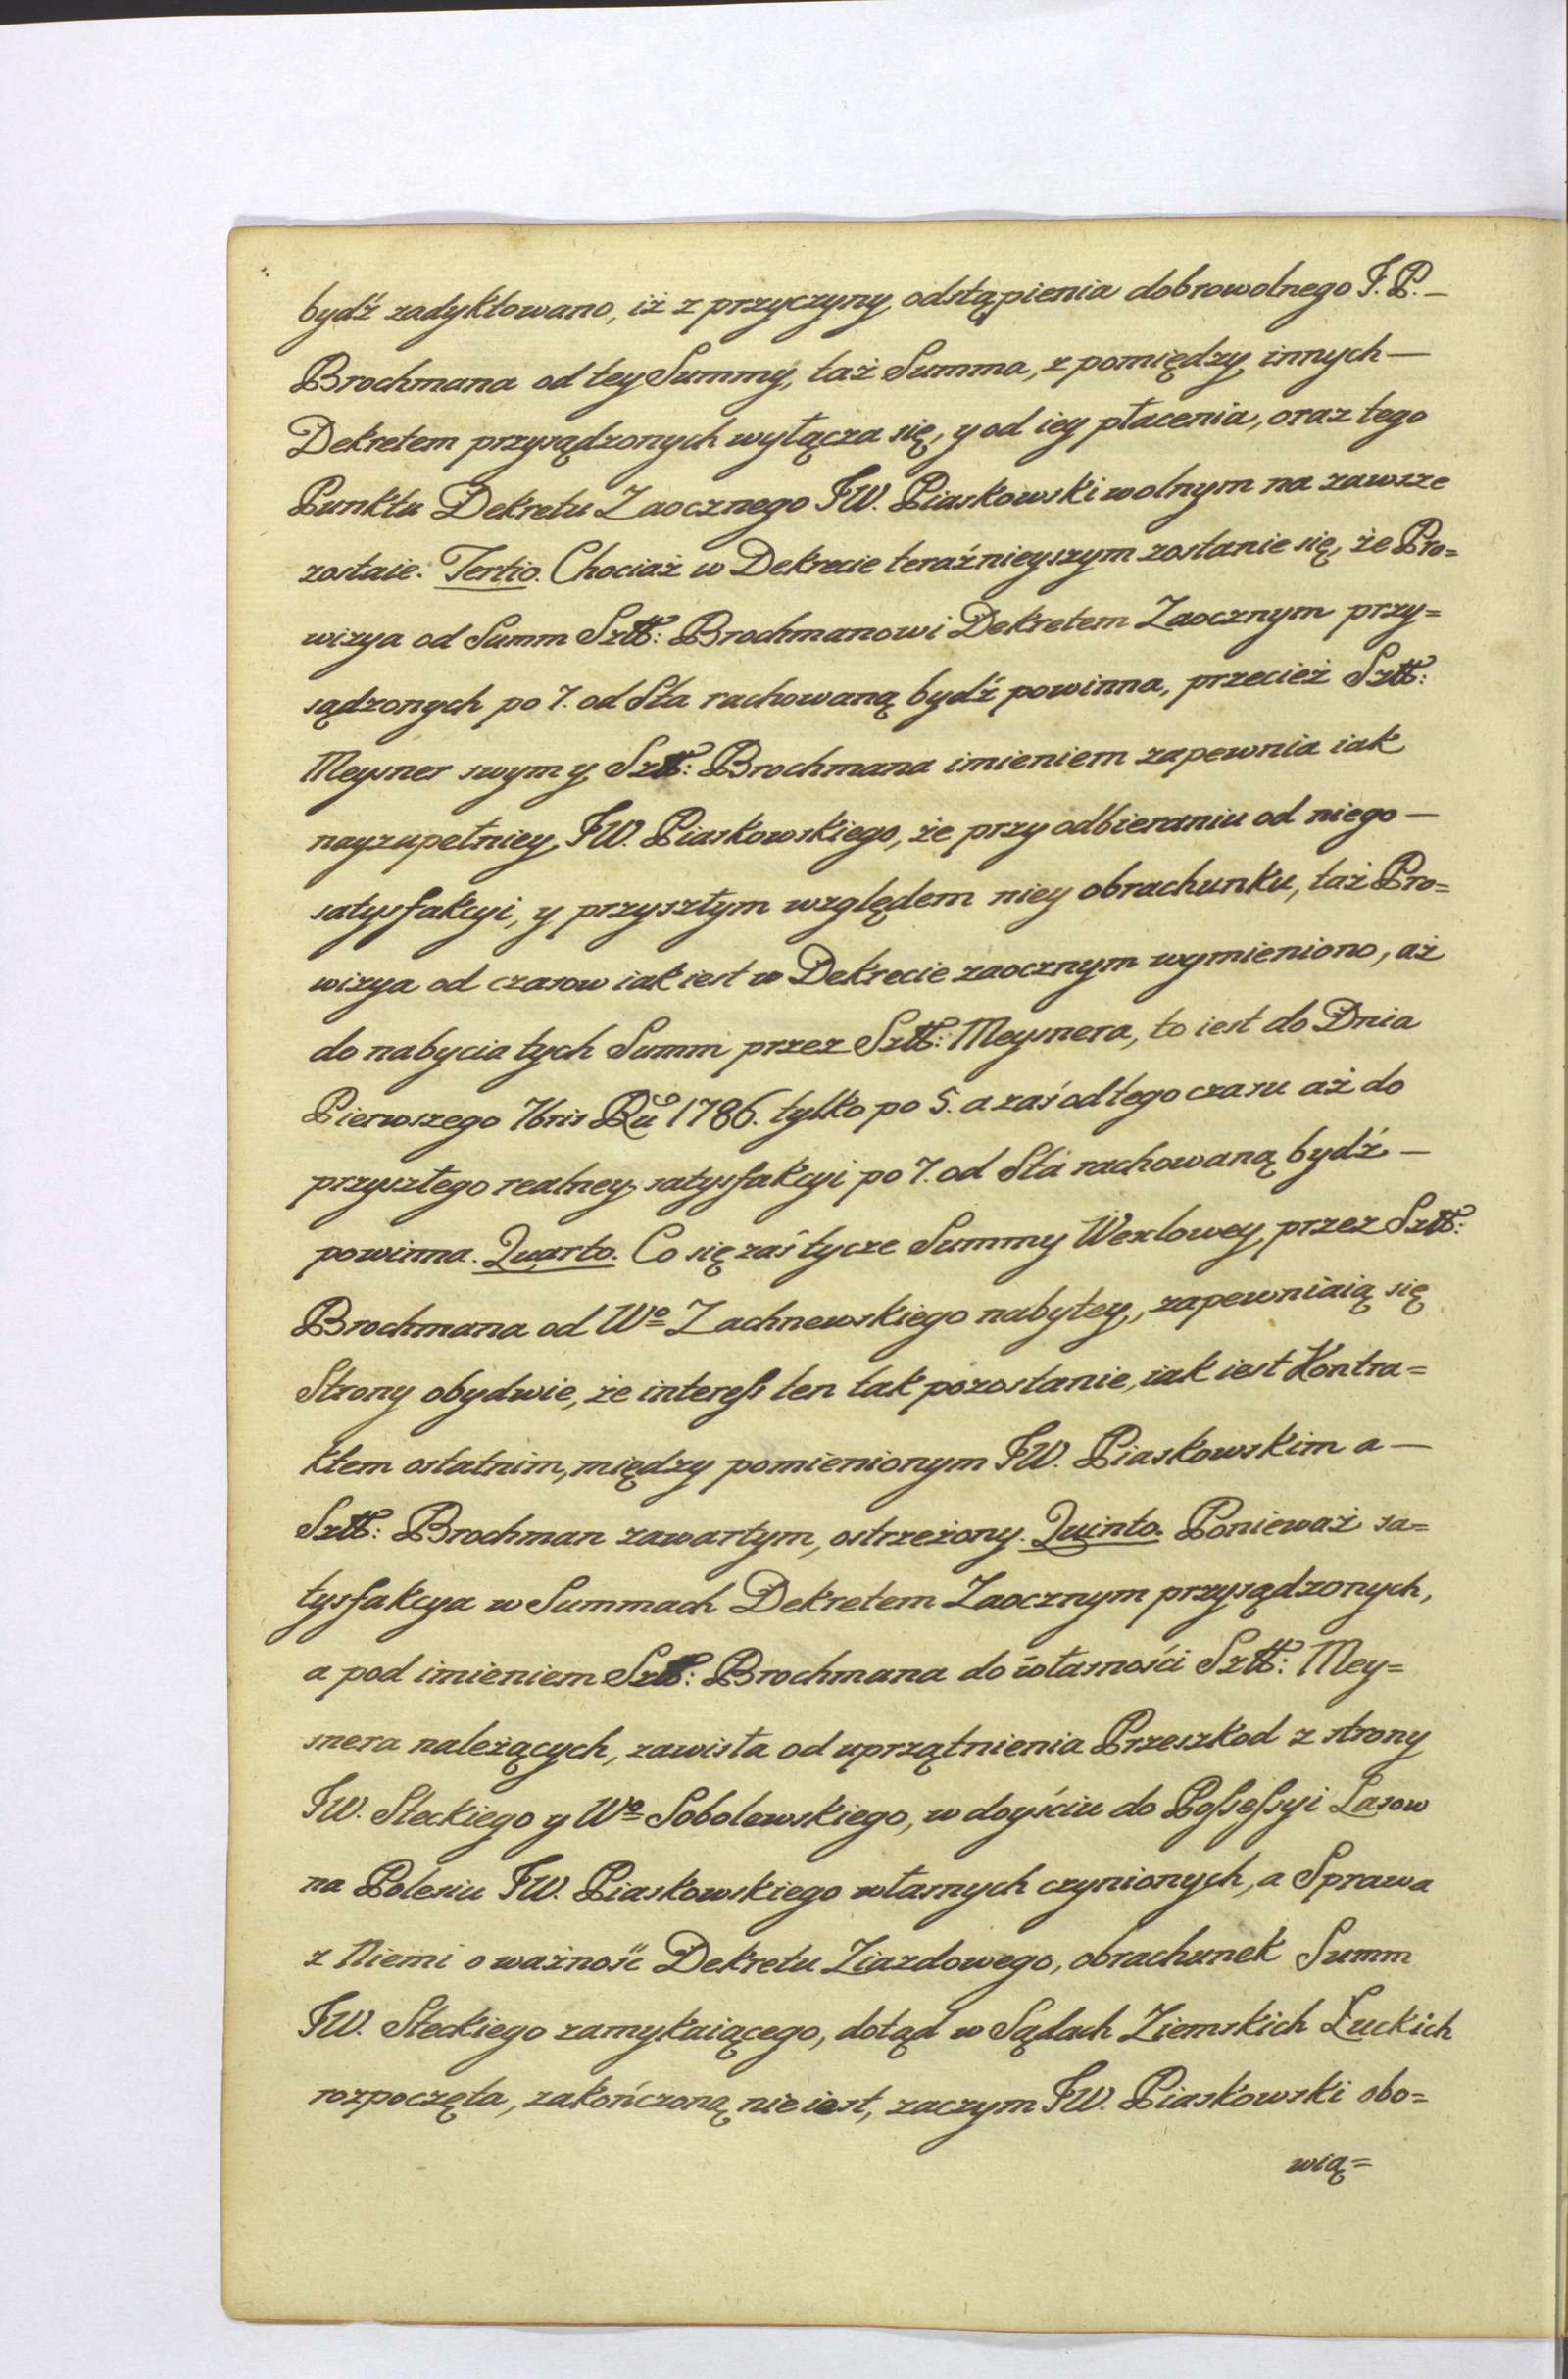 bydź zadyktowano, iż z przyczyny odstąpienia dobrowolnego J. P. –
Brochmana od tey Summy, taż Summa, z pomiędzy innych –
Dekretem przysądzonych wyłącza się, y od iey płacenia, oraz tego
Punktu Dekretu Zaocznego JW. Piaskowski wolnym na zawsze
zostaie. Tertio. Chociaż w Dekrecie teraźnieyszym zostanie się, że Pro=
wizya od Summ Sztt: Brochmanowi Dekretem Zaocznym przy=
sądzonych po 7. od Sta rachowaną bydź powinna, przecież Sztt:
Meysner swym y Sztt: Brochmana imieniem zapewnia iak
nayzupełniey JW. Piaskowskiego, że przy odbieraniu od niego –
satysfakcyi, y przyszłym względem niey obrachunku, taż Pro=
wizya od czasow iak iest w Dekrecie zaocznym wymieniono, aż
do nabycia tych Summ przez Sztt: Meysnera, to iest do Dnia
Pierwszego 7bris Ru 1786. tylko po 5. a zaś od tego czasu aż do
przyszłego realney satysfakcyi po 7. od Sta rachowaną bydź –
powinna. Quarto. Co się zaś tycze Summy Wexlowey, przez Sztt:
Brochmana od Wo Zachnewskiego nabytey, zapewniaią się
Strony obydwie, że interess ten tak pozostanie, iak iest Kontra=
ktem ostatnim, między pomienionym JW. Piaskowskim a –
Sztt: Brochman zawartym, ostrzeżony. Quinto. Ponieważ sa=
tysfakcya w Summach Dekretem Zaocznym przysądzonych,
a pod imieniem Sztt: Brochmana do własności Sztt: Mey=
snera należących, zawisła od uprzątnienia Przeszkod z strony
JW. Steckiego y Wo Sobolewskiego, w doyściu do Possessyi Lasow
na Polesiu JW. Piaskowskiego własnych czynionych, a Sprawa
z Niemi o ważność Dekretu Ziazdowego, obrachunek Summ
JW. Steckiego zamykaiącego, dotąd w Sądach Ziemskich Łuckich
rozpoczęta, zakończoną nie iest, zaczym JW. Piaskowski obo=
wią=